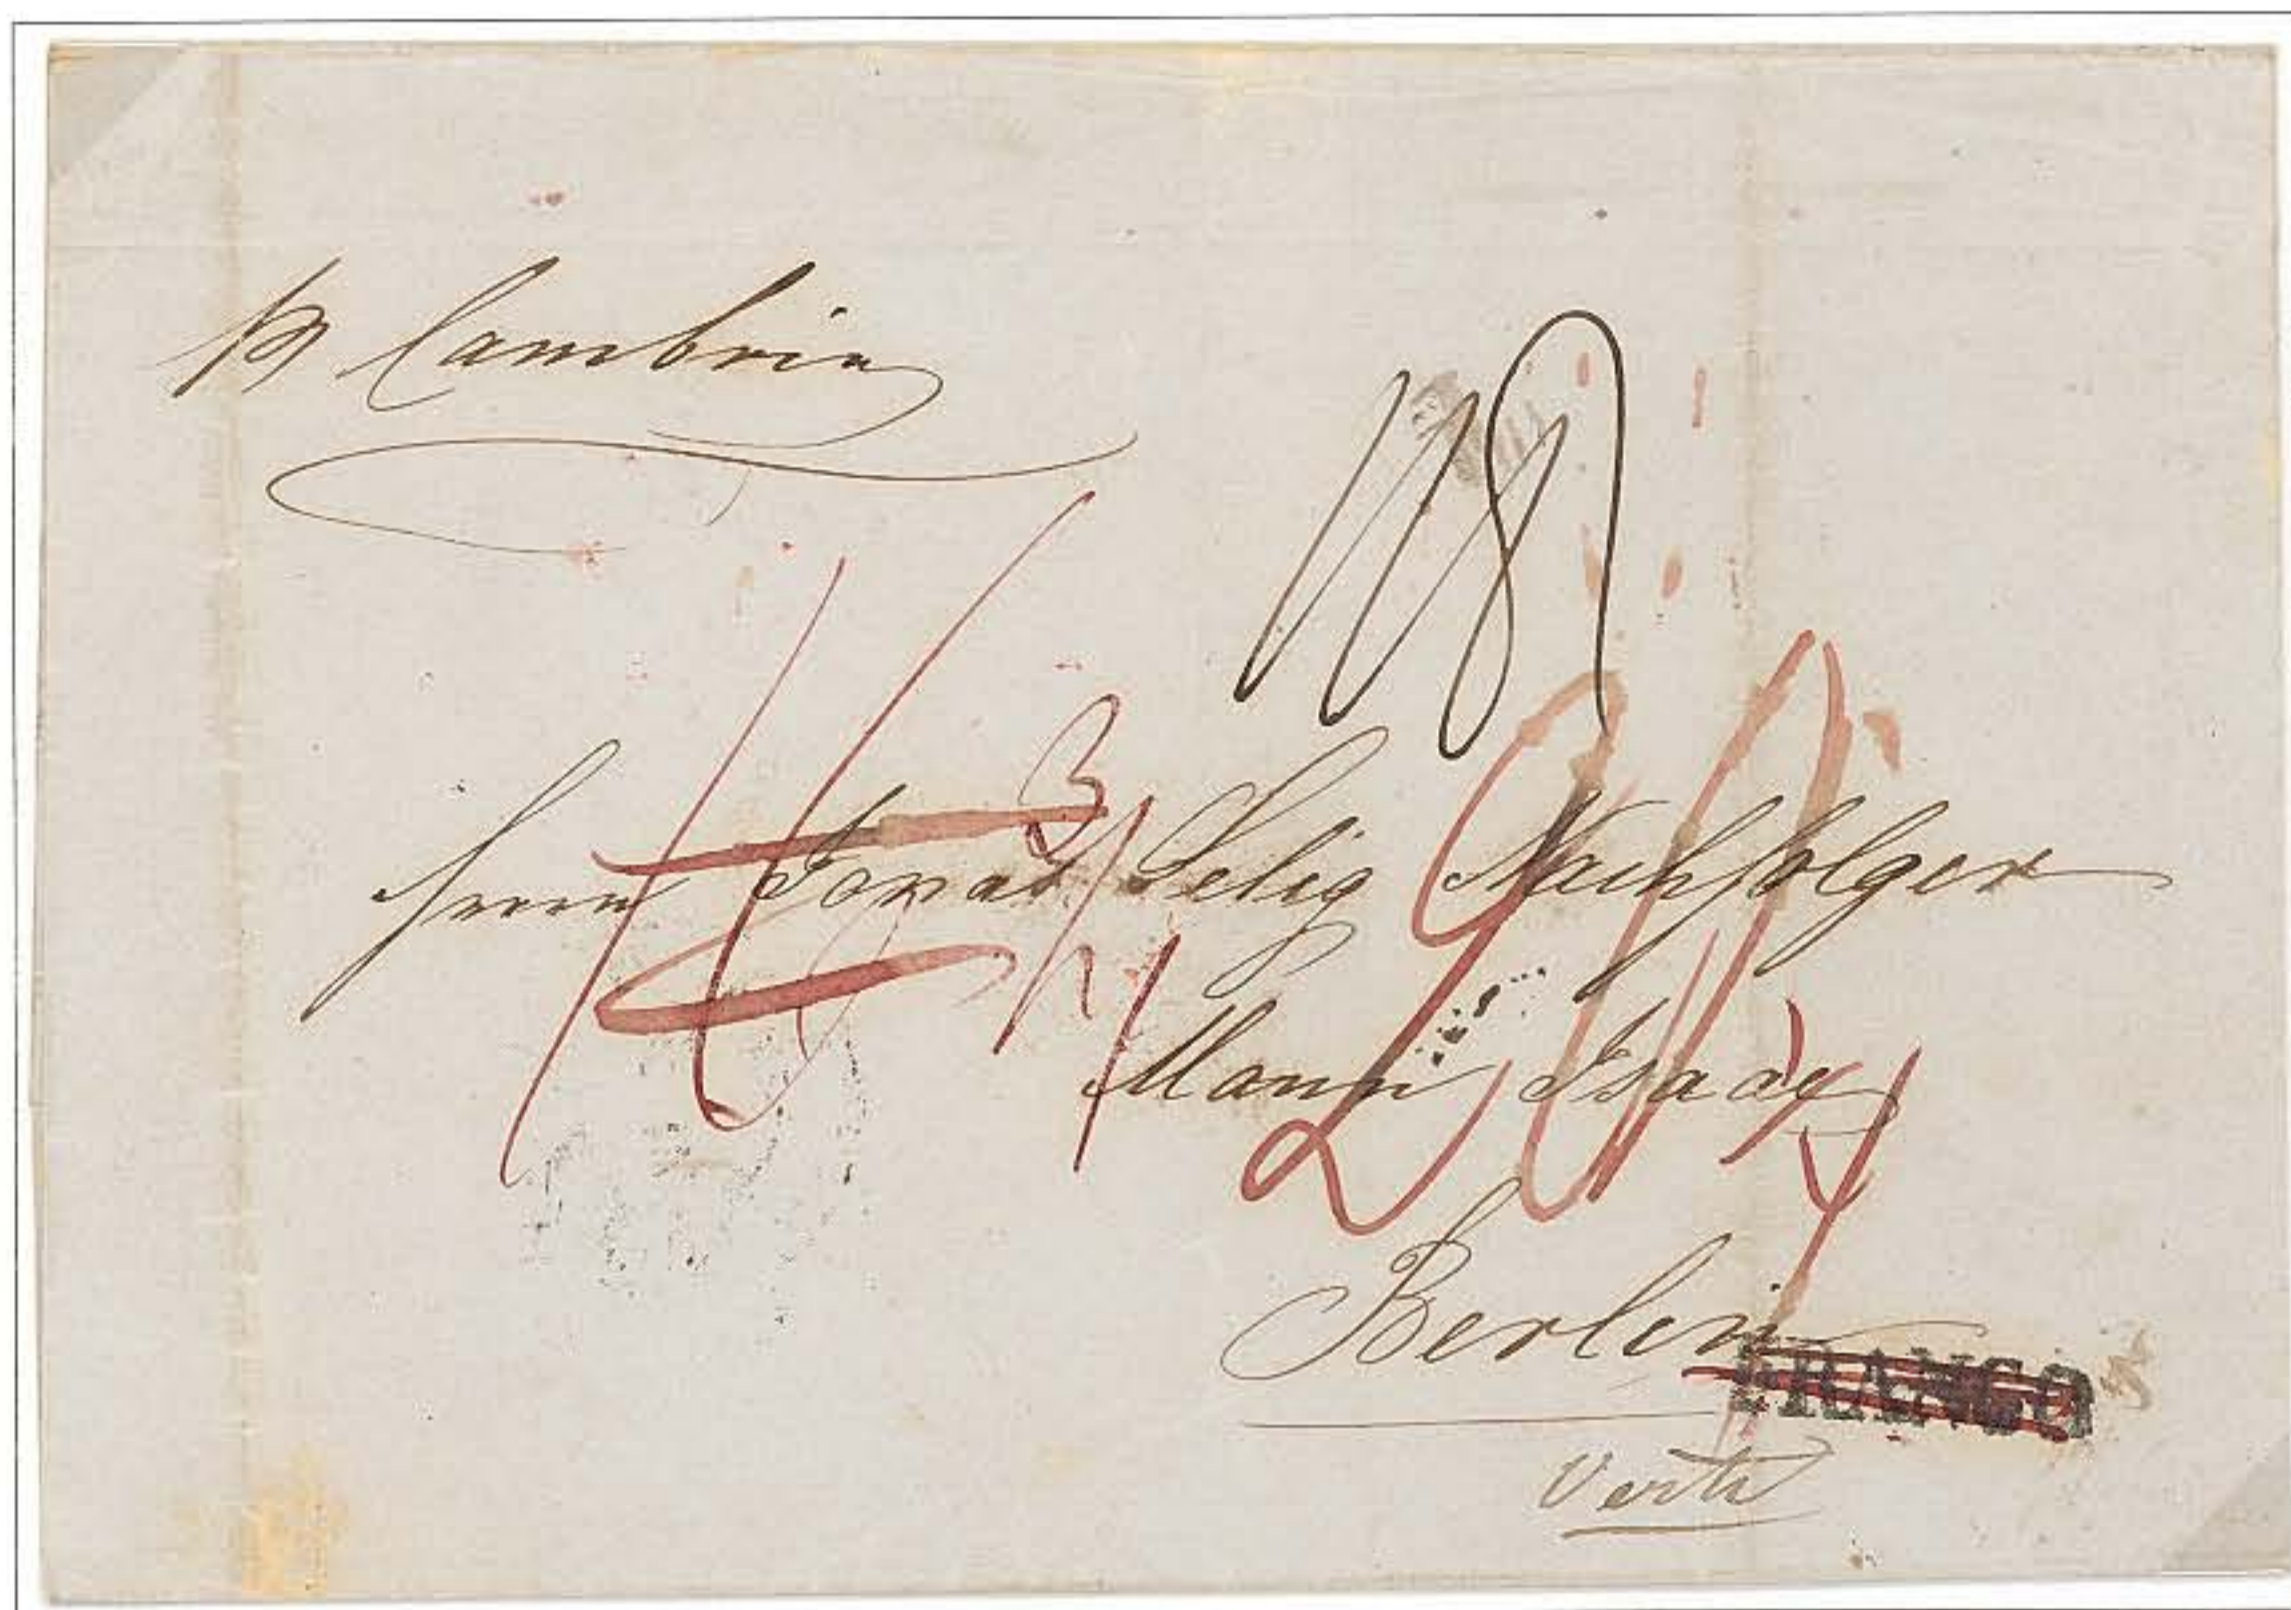 pr Cambria
Herrn Jonas Selig Nachfolger
Mann Isaac
Berlin
FRANCO
Verte